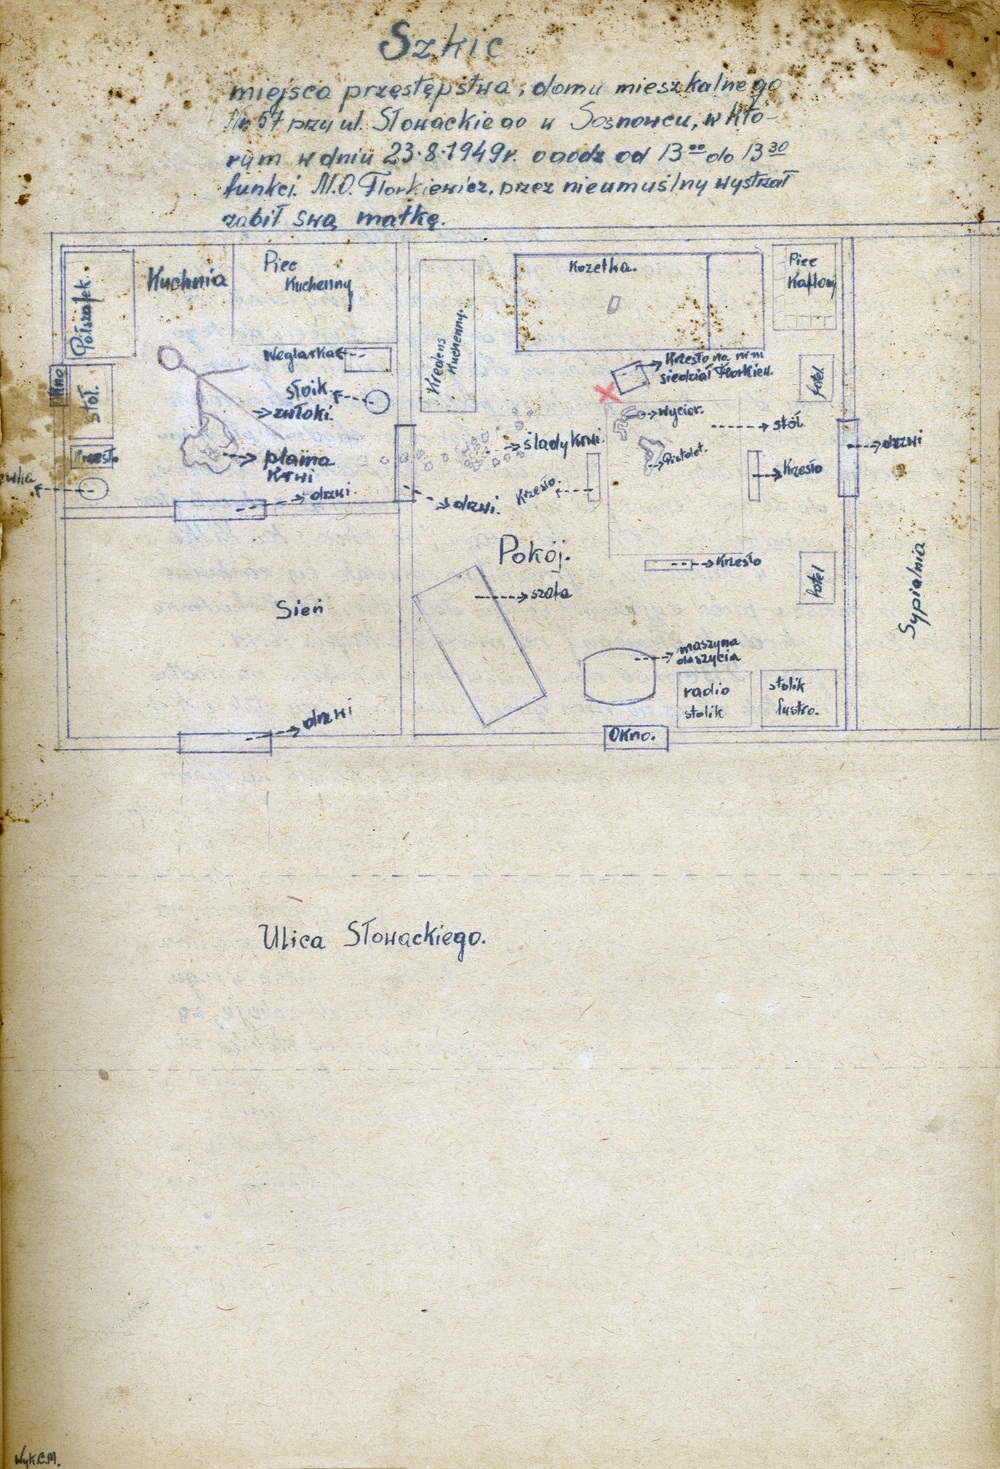 3
Szkic
miejsca przęstępstwa, domu mieszkalnego
Nr 57 przy ul. Słowackiego w Sosnowcu, w któ-
rym w dniu 23.8.1949r. o godz od 13⁰⁰ do 13³⁰
funkcj. M.O. Florkiewicz, przez nieumuślny wystrzał
zabił swą matkę.
Kuchnia
Piec
Kuchenny
Półszafek
Węglarka
słoik
zwłoki.
stół.
Krzesło
plama
Krwi
drzwi.
Kredens
Kuchenny.
Kozetka.
Piec
Kaflowy
Krzesło na nim
siedział Florkiew.
fotel
wycior.
stół
ślady Krwi.
Pistolet.
drzwi
Krzesło.
Krzesło
drzwi.
Pokój.
Krzesło
fotel
Sypialnia
szafa
Sień
maszyna
do szycia
radio
stolik
stolik
lustro.
drzwi
Okno.
Ulica Słowackiego.
Wyk.C.M.